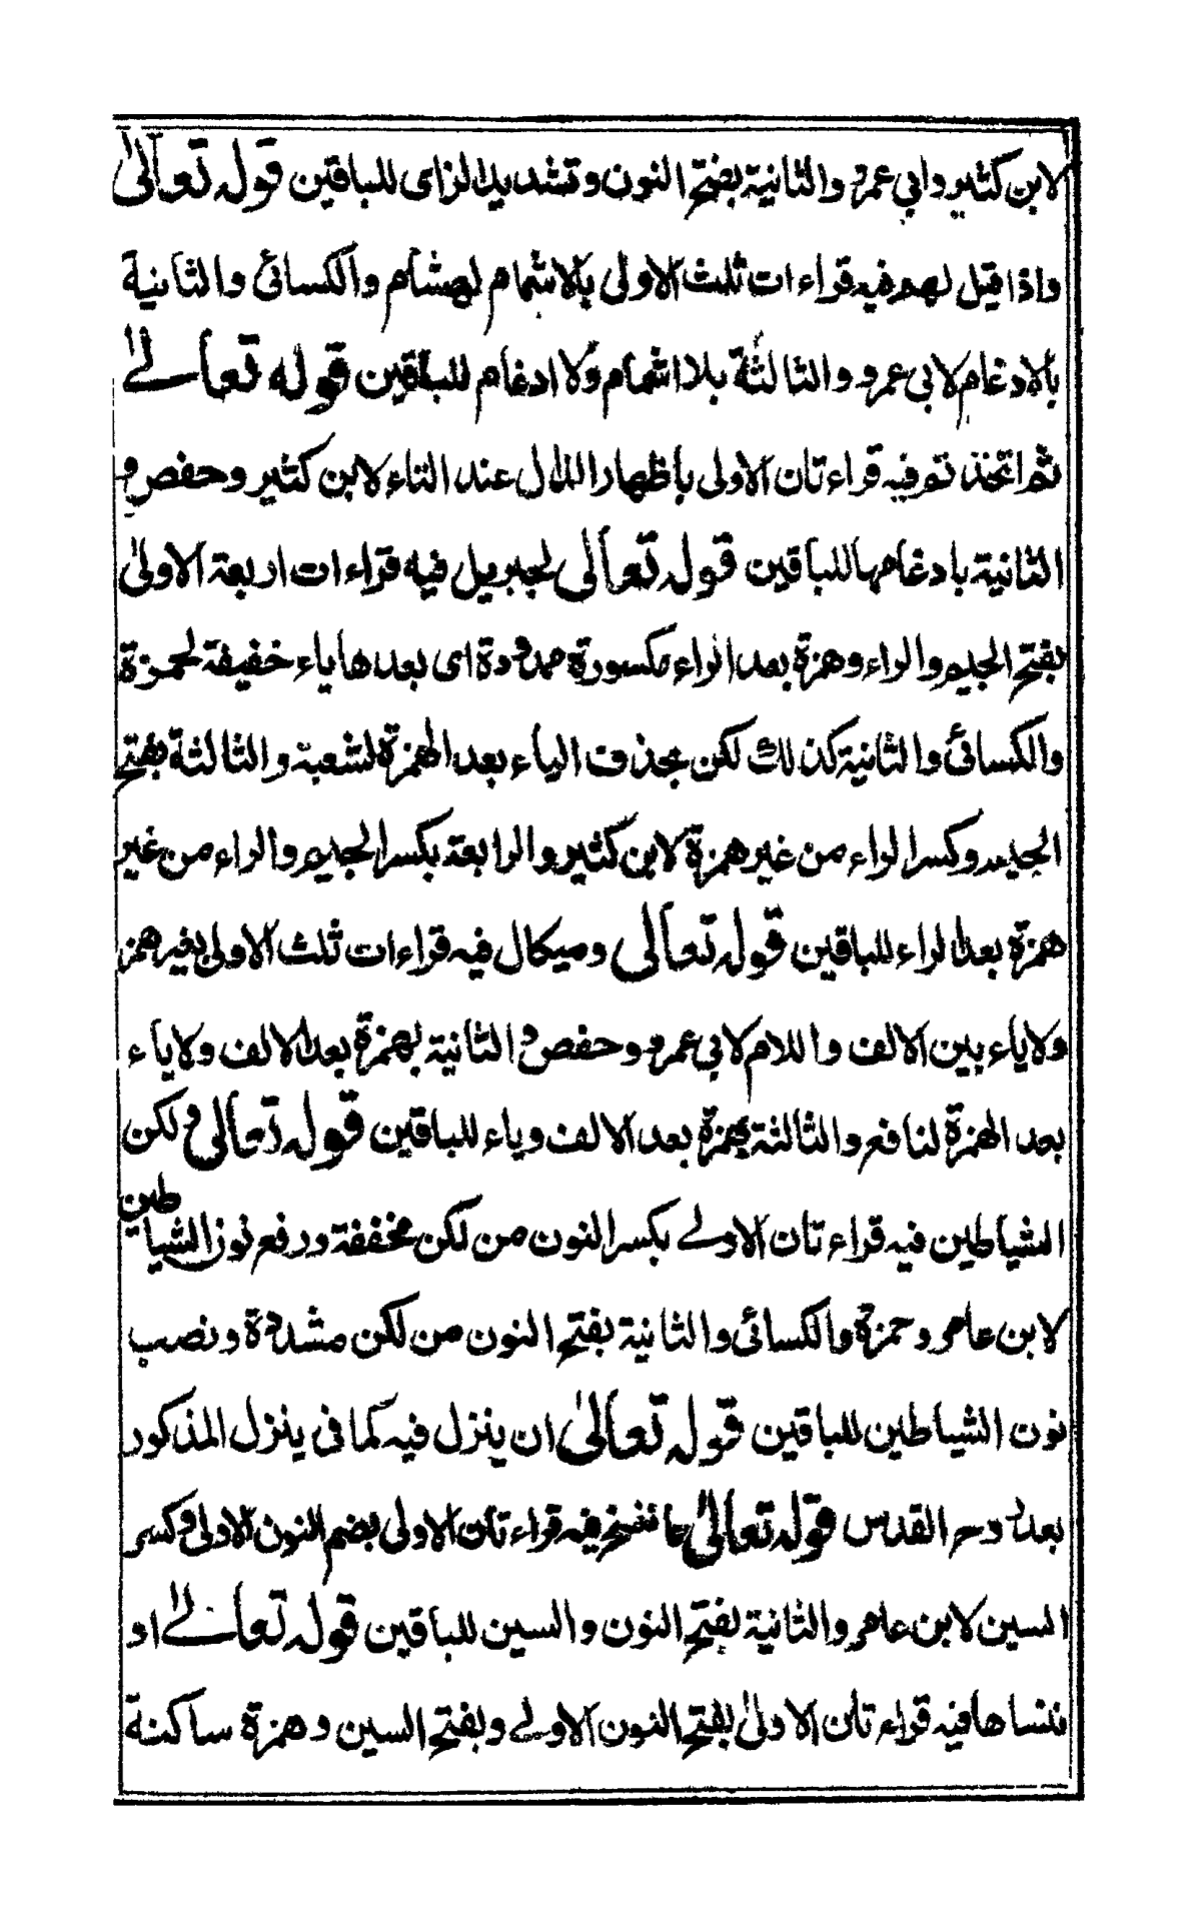 لابن كثير وابي عمرو والثانية بفتح النون وتشديد الزاى للباقين قوله تعالى
واذا قيل لهم فيه قراءات ثلث الاولى بالاشمام لهشام والكسائى والثانية
بالادغام لابى عمرو والثالثة بلا اشمام ولا ادغام للباقين قوله تعالے
ثم اتخذ تم فيه قراءتان الاولى باظهار الذال عند التاء لابن كثير وحفص و
الثانية بادغامها للباقين قوله تعالى لجبريل فيه قراءات اربعة الاولىٰ
بفتح الجيم والراء وهمزة بعد الراء مكسورة ممدودة اى بعدها ياء خفيفة لحمزة
والكسائى والثانية كذلك لكن بحذف الياء بعد الهمزة لشعبة والثالثة بفتح
الجيم وكسر الراء من غير همزة لابن كثير والرابعة بكسر الجيم والراء من غير
همزة بعد الراء للباقين قوله تعالى وميكال فيه قراءات ثلث الاولى بغير همز
ولاياء بين الالف واللام لابى عمرو وحفص و الثانية بهمزة بعد الالف ولاياء
بعد الهمزة لنافع والثالثة بهمزة بعد الالف وياء للباقين قوله تعالى ولكن
الشياطين فيه قراءتان الاولے بكسر النون من لكن مخففة ورفع نون الشياطين
لابن عامر وحمزة والكسائى والثانية بفتح النون من لكن مشددة ونصب
نون الشياطين للباقين قوله تعالىٰ ان ينزل فيه كما فى ينزل المذكور
بعد روح القدس قوله تعالىٰ ما ننسخ فيه قراءتان الاولى بضم النون الاولى وكسر
السين لابن عامر والثانية بفتح النون والسين للباقين قوله تعالے او
ننساها فيه قراءتان الاولىٰ بفتح النون الاولے وبفتح السين وهمزة ساكنة